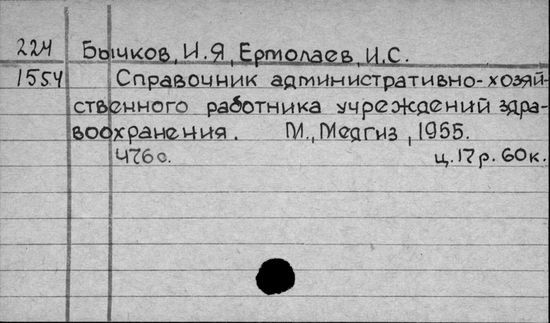 224 Бычков, И.Я, Ермолаев, И.С.
1554 Справочник административно-хозяй-
ственного работника учреждений здра-
воохранения. М., Медгиз, 1955.
476с. ц.17р.60к.